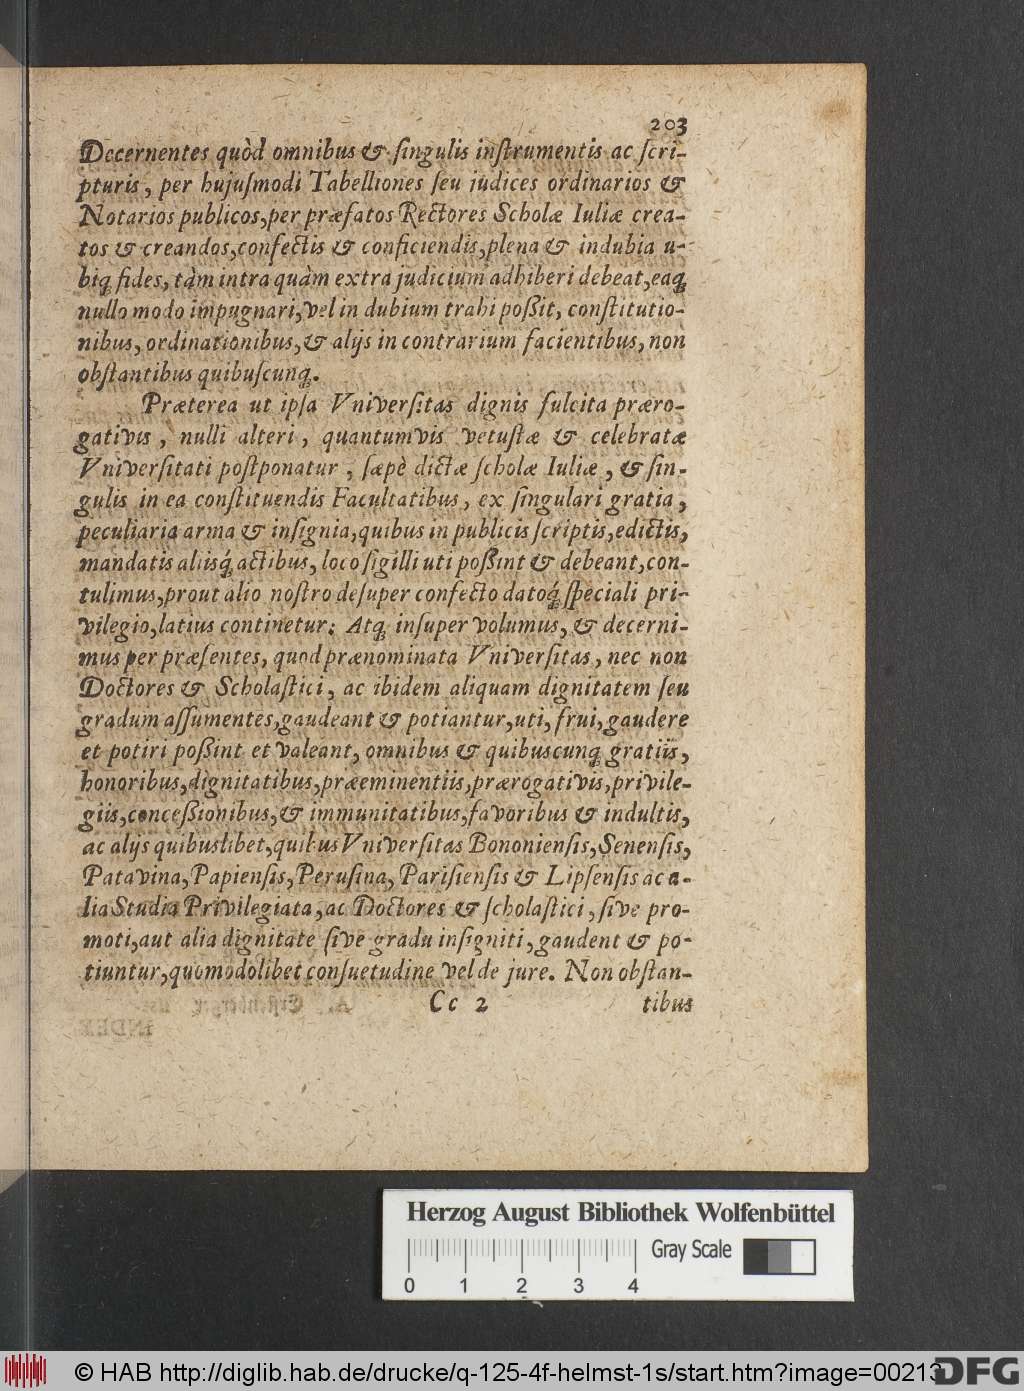 203
Decernentes quòd omnibus & ſingulis inſtrumentis ac ſcri-
pturis, per hujuſmodi Tabelliones ſeu iudices ordinarios &
Notarios publicos, per præfatos Rectores Scholæ Iuliæ crea-
tos & creandos, confectis & conficiendis, plena & indubia u-
biq́ fides, tàm intra quàm extra judicium adhiberi debeat, eaq́
nullo modo impugnari, vel in dubium trahi poßit, conſtitutio-
nibus, ordinationibus, & alijs in contrarium facientibus, non
obſtantibus quibuſcunq́.
Præterea ut ipſa Vniverſitas dignis fulcita præro-
gativis, nulli alteri, quantumvis vetuſtæ & celebratæ
Vniverſitati poſtponatur, ſæpè dictæ ſcholæ Iuliæ, & ſin-
gulis in ea conſtituendis Facultatibus, ex ſingulari gratia,
peculiaria arma & inſignia, quibus in publicis ſcriptis, edictis,
mandatis aliisq́ actibus, loco ſigilli uti poßint & debeant, con-
tulimus, prout alio noſtro deſuper confecto datoq́ ſpeciali pri-
vilegio, latius continetur: Atq́ inſuper volumus, & decerni-
mus per præſentes, quod prænominata Vniverſitas, nec non
Doctores & Scholaſtici, ac ibidem aliquam dignitatem ſeu
gradum aſſumentes, gaudeant & potiantur, uti, frui, gaudere
et potiri poßint et valeant, omnibus & quibuscunq́ gratiis,
honoribus, dignitatibus, præeminentiis, prærogativis, privile-
giis, conceßionibus, & immunitatibus, favoribus & indultis,
ac alijs quibuslibet, quibus Vniverſitas Bononienſis, Senenſis,
Patavina, Papienſis, Peruſina, Pariſienſis & Lipſenſis ac a-
lia Studia Privilegiata, ac Doctores & ſcholaſtici, ſive pro-
moti, aut alia dignitate ſive gradu inſigniti, gaudent & po-
tiuntur, quomodolibet conſuetudine vel de jure. Non obſtan-
Cc 2 tibus
Herzog August Bibliothek Wolfenbüttel
Gray Scale
0 1 2 3 4
© HAB http://diglib.hab.de/drucke/q-125-4f-helmst-1s/start.htm?image=00213
DFG